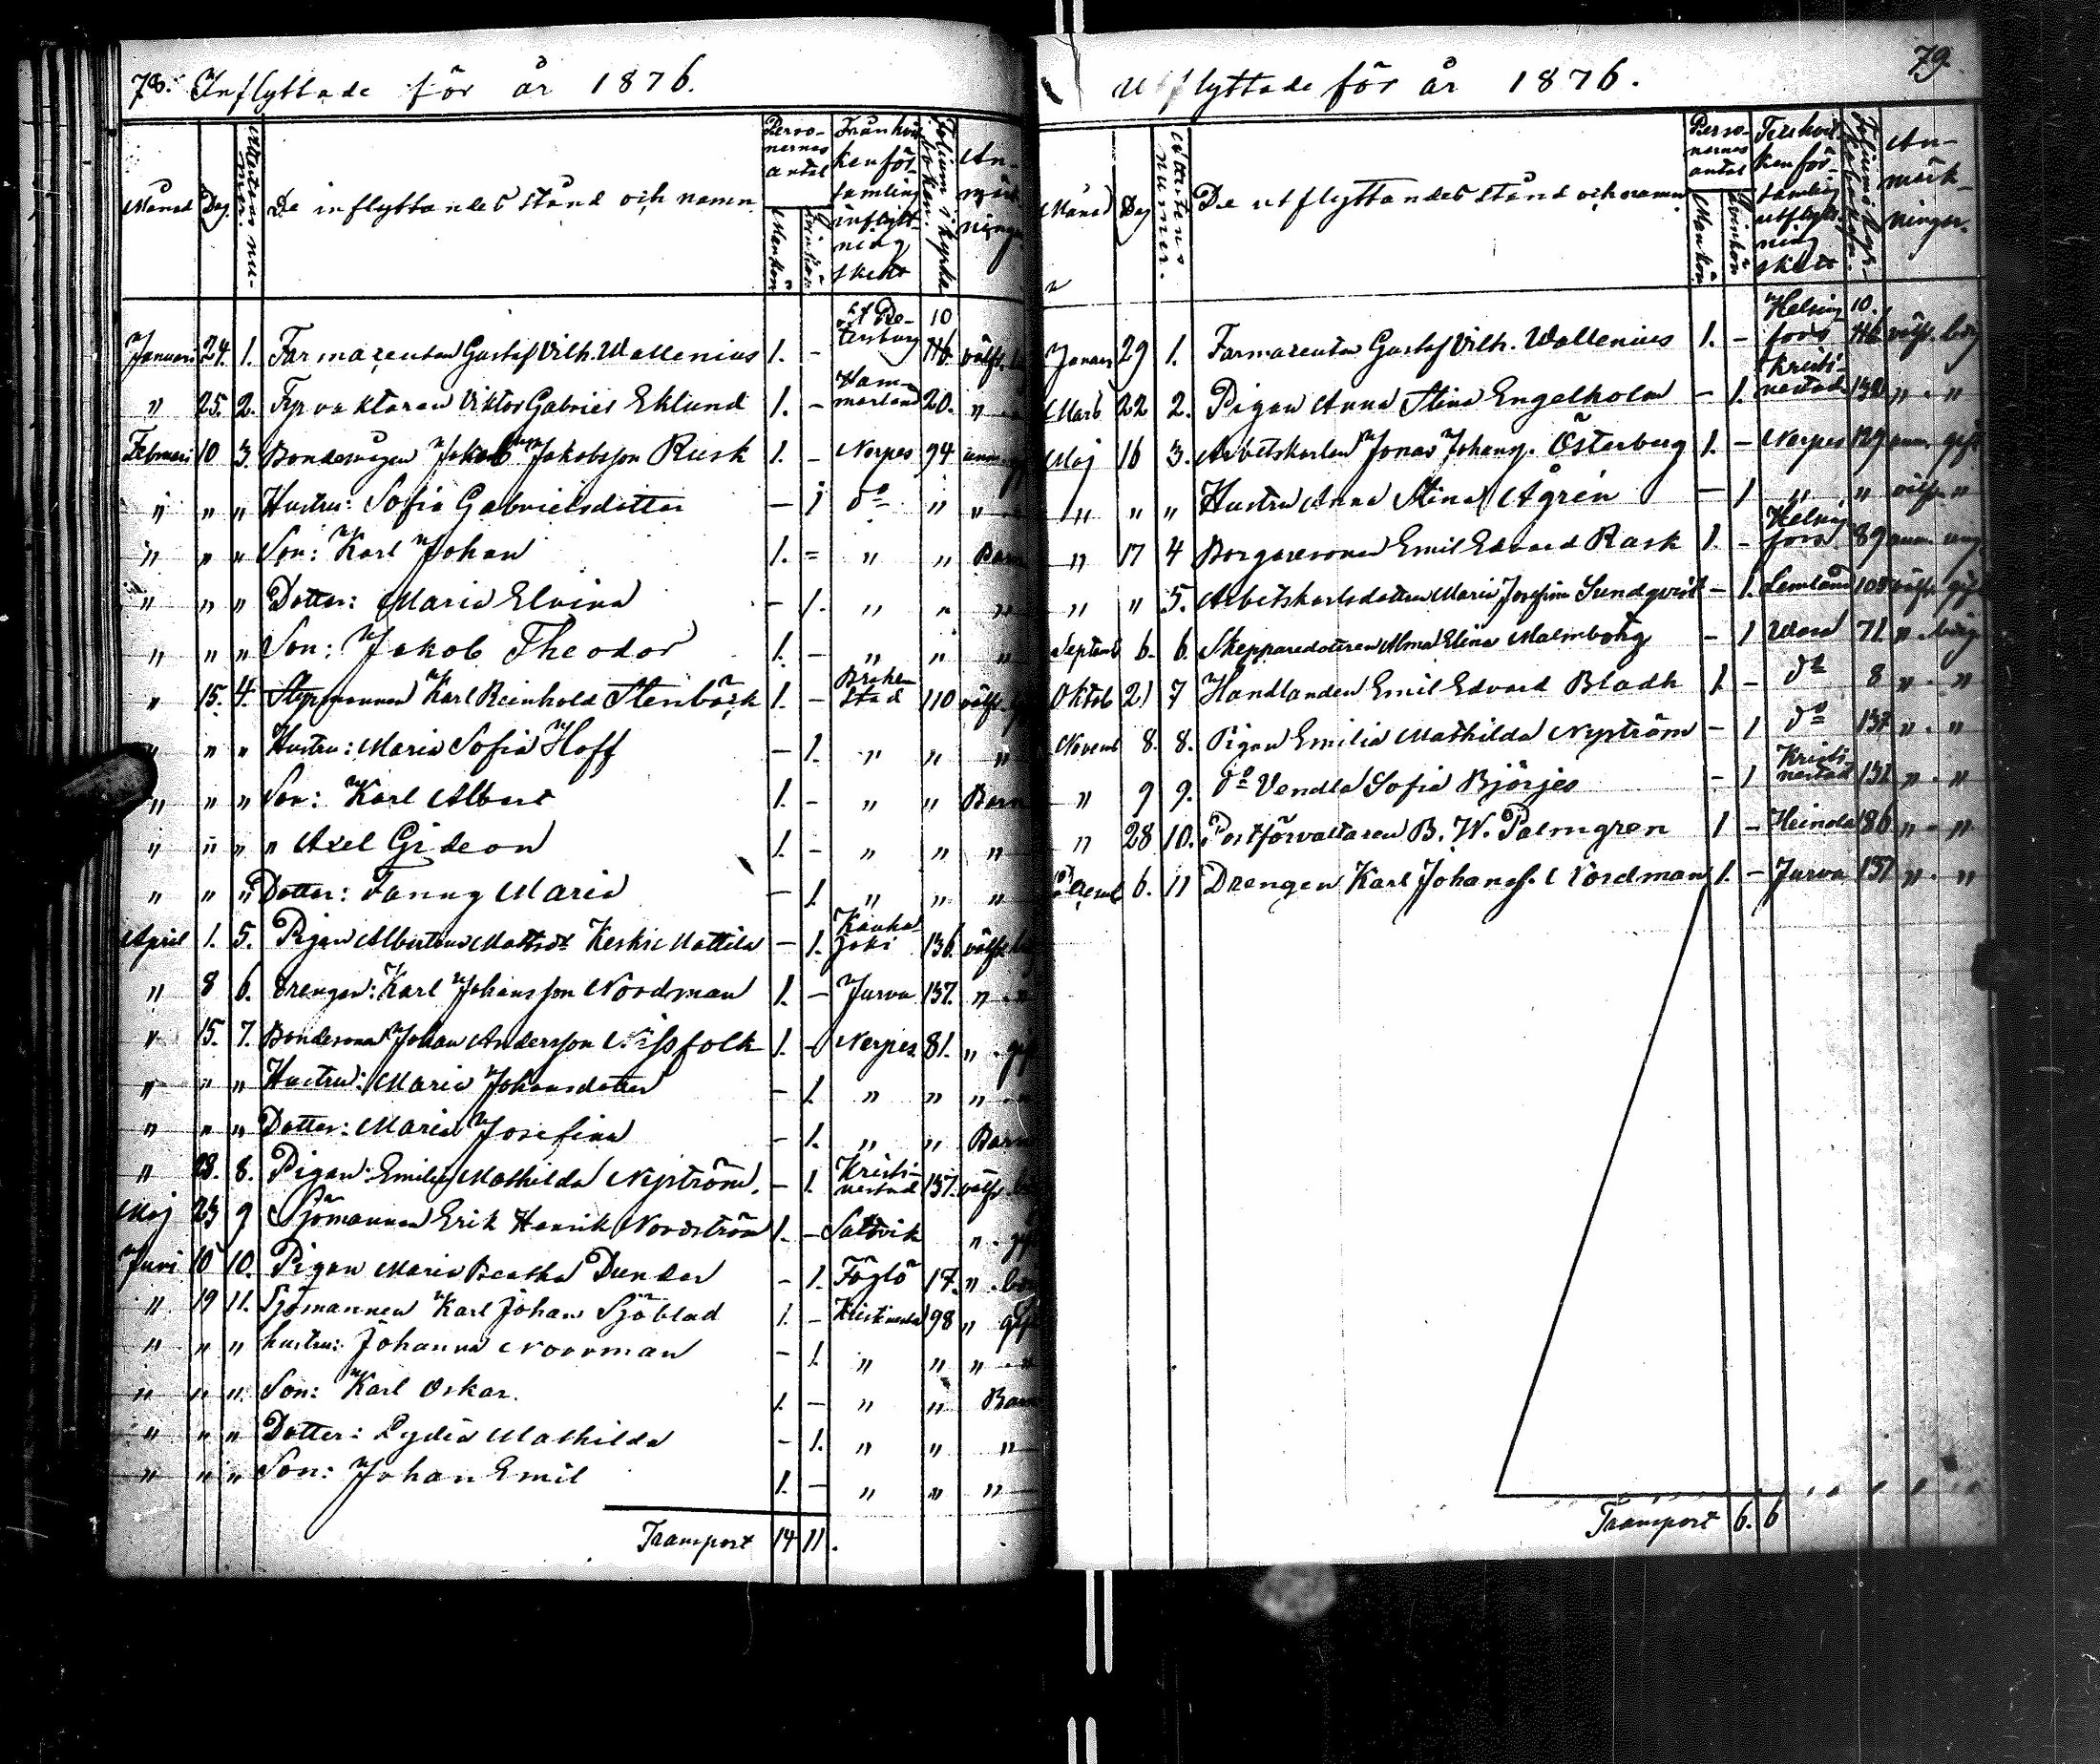 78. Inflyttade för år 1876.
Månad Dag. Attestens nummer De inflyttandes stånd och namn Personernas antal Mankön Qvinkön Från hvilken församling inflyttning skett Folium i kyrkoboken. Anmärkningar
Januari 24. 1. Farmaceuten Gustaf Vilh. Wallenius 1. – St Petersburg 10 116. välfr.
" 25. 2. Fyrvaktaren Viktor Gabriel Eklund 1. – Hammarland 20. "
Februari 10 3. Bondesonen Jakob Jakobsson Rusk 1. – Nerpes 94
" " " Hustru: Sofia Gabrielsdotter – 1 do " "
" " " Son: Karl Johan 1. = " " Barn
" " " Dotter: Maria Elvina – 1. " " "
" " " Son: Jakob Theodor 1. – " " "
" 15. 4. Styrmannen Karl Reinhold Stenbäck 1. – Brahestad 110 välfr.
" " " Hustru: Maria Sofia Hoff – 1. " " "
" " " Son: Karl Albert 1. – " " Barn
" " " " Axel Gideon 1. – " " "
" " " Dotter: Fanny Maria – 1. " " "
April 1. 5. Pigan Albertina Mattsdr Keski Mattila – 1. Kauhajoki 136. välfr.
" 8 6. Drengen: Karl Johansson Nordman 1. – Jurva 137. " "
" 15. 7. Bondesonen Johan Andersson Nissfolk 1. – Nerpes 81. " . gift
" " " Hustru: Maria Johansdotter – 1. " " " "
" " " Dotter: Maria Josefina – 1. " " Barn
" 28. 8. Pigan: Emilia Mathilda Nyström. – 1. Kristinestad 137. välfr.
Maj 23 9 Sjömannen Erik Henrik Nordström 1. – Saltvik " . gift
Juni 10 10. Pigan Maria Beatha Dunder – 1. Föglö 17. "
" 19 11. Sjömannen Karl Johan Sjöblad 1. – Kristinestad 98 " gift
" " " hustru: Johanna Norrman – 1. " " " "
" " " Son: Karl Oskar. 1. – " " Barn
" " " Dotter: Lydia Mathilda – 1. " " "
" " " Son: Johan Emil 1. – " " "
Transport 14 11.
Utflyttade för år 1876. 79.
Månad Dag Attestens nummer. De utflyttandes stånd och namn Personernas antal Mankön Qvinkön Till hvilken församling utflyttning skett Folium i kyrkoboken. Anmärkningar.
Januari 29 1. Farmaceuten Gustaf Vilh. Wallenius 1. – Helsingfors 10. 116 välfr. beg
Mars 22 2. Pigan Anna Stina Engelholm – 1. Kristinestad 132 " . "
Maj 16 3. Arbetskarlen Jonas Johanss. Österberg 1. – Nerpes 129 gift
" " " Hustru Anna Stina Ågren – 1 " " välfr "
" 17 4 Borgaresonen Emil Edvard Rask 1. – Helsingfors. 89
" " 5. Arbetskarlsdottren Maria Josefina Sundqvist – 1. Lemland 108 välfr
Septemb 6. 6. Skepparedottren Alma Elina Malmborg – 1 Wasa 71 "
Oktob 21 7 Handlanden Emil Edvard Bladh 1. – do 8 " . "
Novemb 8. 8. Pigan Emilia Mathilda Nyström – 1 do 137 " . "
" 9 9. do Vendla Sofia Björjes – 1 Kristinestad 131 " . "
" 28 10. Postförvaltaren B. W. Palmgren 1 – Heinola 86 " . "
Decemb 6. 11 Drengen Karl Johanss. Nordman 1. – Jurva 137 " . "
Transport 6. 6